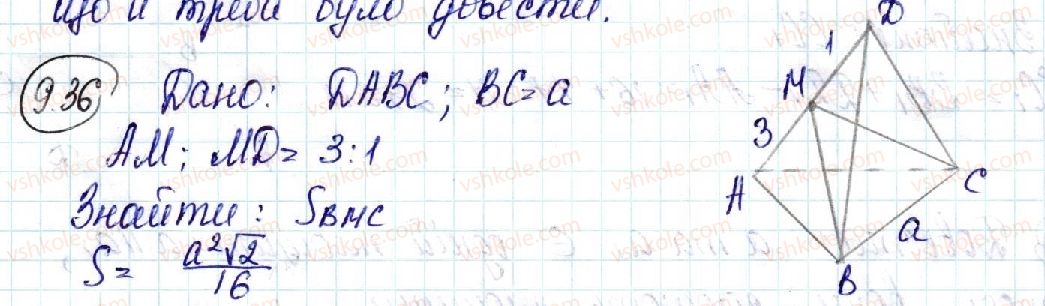 що й треба було довести.
9.36 Дано: DABC; BC=a
AM; MD= 3:1
Знайти: S_BMC
S= a²√2/16
D
1
M
3
A
C
a
B